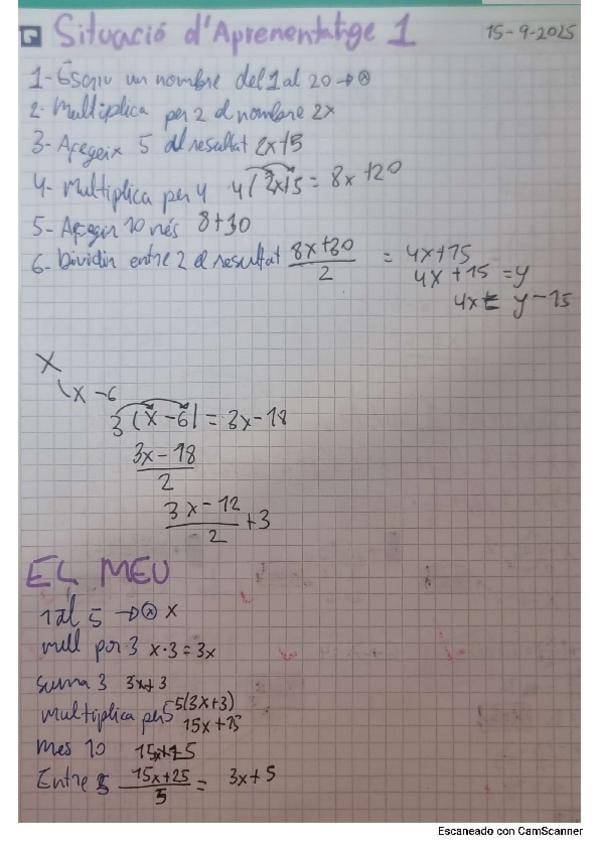 Situació d'Aprenentatge 1 15-9-2025
1- Escriu un nombre del 1 al 20 → ⓧ
2- Multiplica per 2 el nombre 2x
3- Afegeix 5 al resultat 2x+5
4- Multiplica per 4 4(2x+5 = 8x+20
5- Afegir 10 més 8+30
6- Dividir entre 2 el resultat (8x+30)/2 = 4x+15
4x+15 = y
4x = y-15
x
x-6
3(x-6) = 3x-18
(3x-18)/2
(3x-12)/2 +3
EL MEU
1 al 5 → ⓧ x
mull por 3 x·3=3x
suma 3 3x+3
multiplica per 5 5(3x+3)
15x+15
mes 10 15x+25
Entre 5 (15x+25)/5 = 3x+5
Escaneado con CamScanner